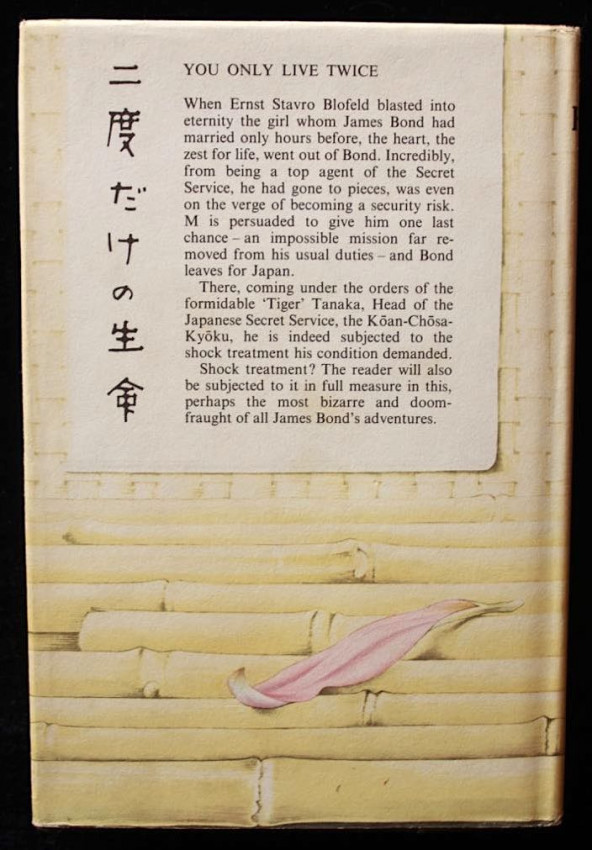 二度だけの生命
YOU ONLY LIVE TWICE
When Ernst Stavro Blofeld blasted into
eternity the girl whom James Bond had
married only hours before, the heart, the
zest for life, went out of Bond. Incredibly,
from being a top agent of the Secret
Service, he had gone to pieces, was even
on the verge of becoming a security risk.
M is persuaded to give him one last
chance – an impossible mission far re-
moved from his usual duties – and Bond
leaves for Japan.
There, coming under the orders of the
formidable ‘Tiger’ Tanaka, Head of the
Japanese Secret Service, the Kōan-Chōsa-
Kyōku, he is indeed subjected to the
shock treatment his condition demanded.
Shock treatment? The reader will also
be subjected to it in full measure in this,
perhaps the most bizarre and doom-
fraught of all James Bond's adventures.